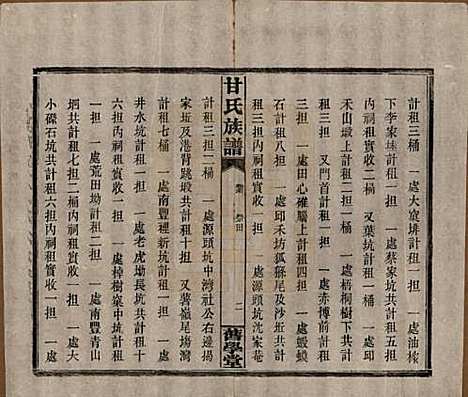 計租三桶　一處大窠排計租一担　一處油榨
下李家𡋾計租一担　一處蔡家坑共計租五担
內祠租實收二担　又葉坑計租一桶　一處邱
禾山塅上計租二担　一處梧桐樹下共計租
一担　又門首計租一担　一處赤摶前計租二
担　一處田心碓上計租四担　一處蝦蟆
石計租八担　一處邱禾坊狐貍尾及沙坵共計
租三担內祠租實收一担　一處源頭坑沈家菴
甘氏族譜　祭田　二　舊學堂
計租三担二桶　一處源頭坑中灣社公右邊揚
家坵及港背跳塅共計租十担　又蔣嶺尾塲灣
計租七桶　一處南豐裡新坑計租一担　一處
井水坑計租一担　一處老虎坳長坑共計租十
六担內祠租實收一担　一處樟樹窠中坑計租
一担　一處荒田坳計租二担　一處南豐青山
坰共計租七担二桶內祠租實收一担　一處
小礤石坑共計租六担內祠租實收一担　一處